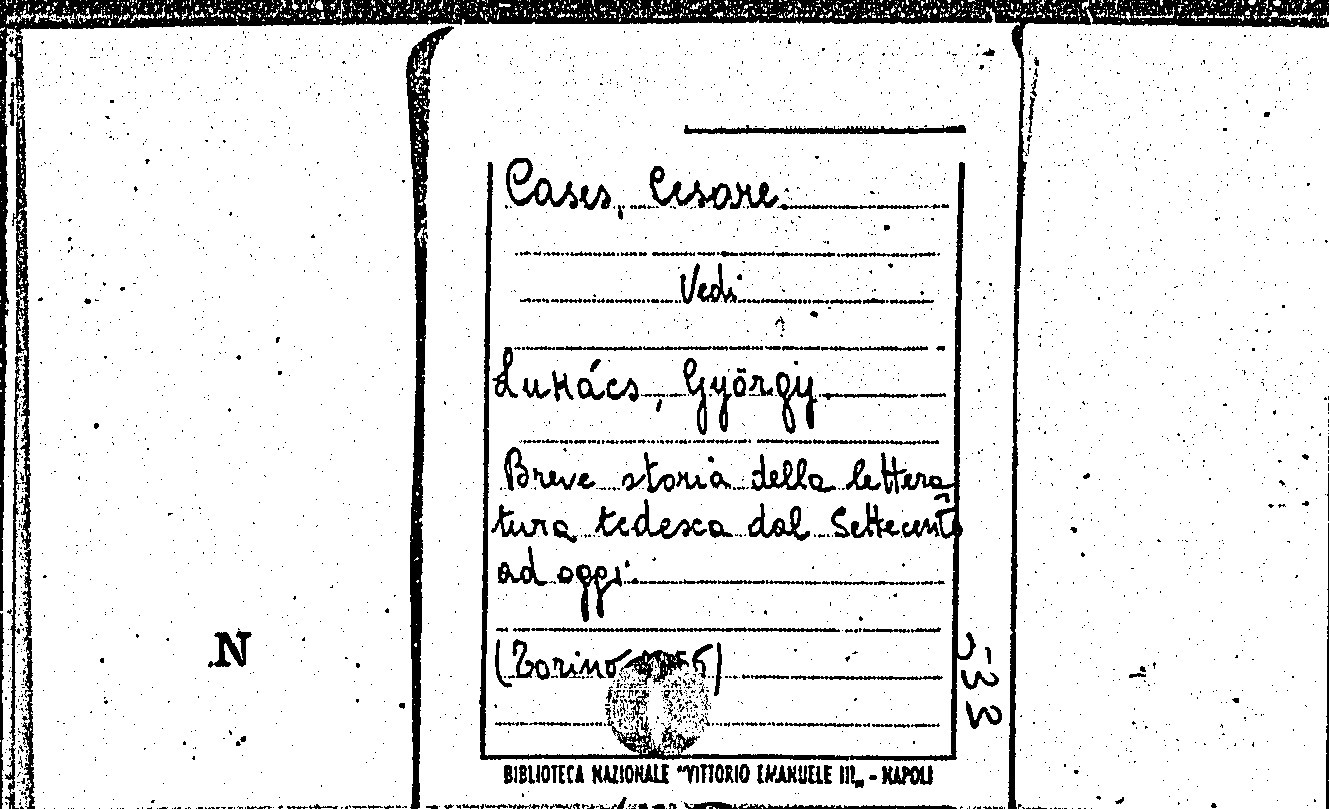 Cases, Cesare.
Vedi
Lukács, György.
Breve storia della lettera
tura tedesca dal Settecento
ad oggi.
(Torino
N
533
BIBLIOTECA NAZIONALE "VITTORIO EMANUELE III„ - NAPOLI